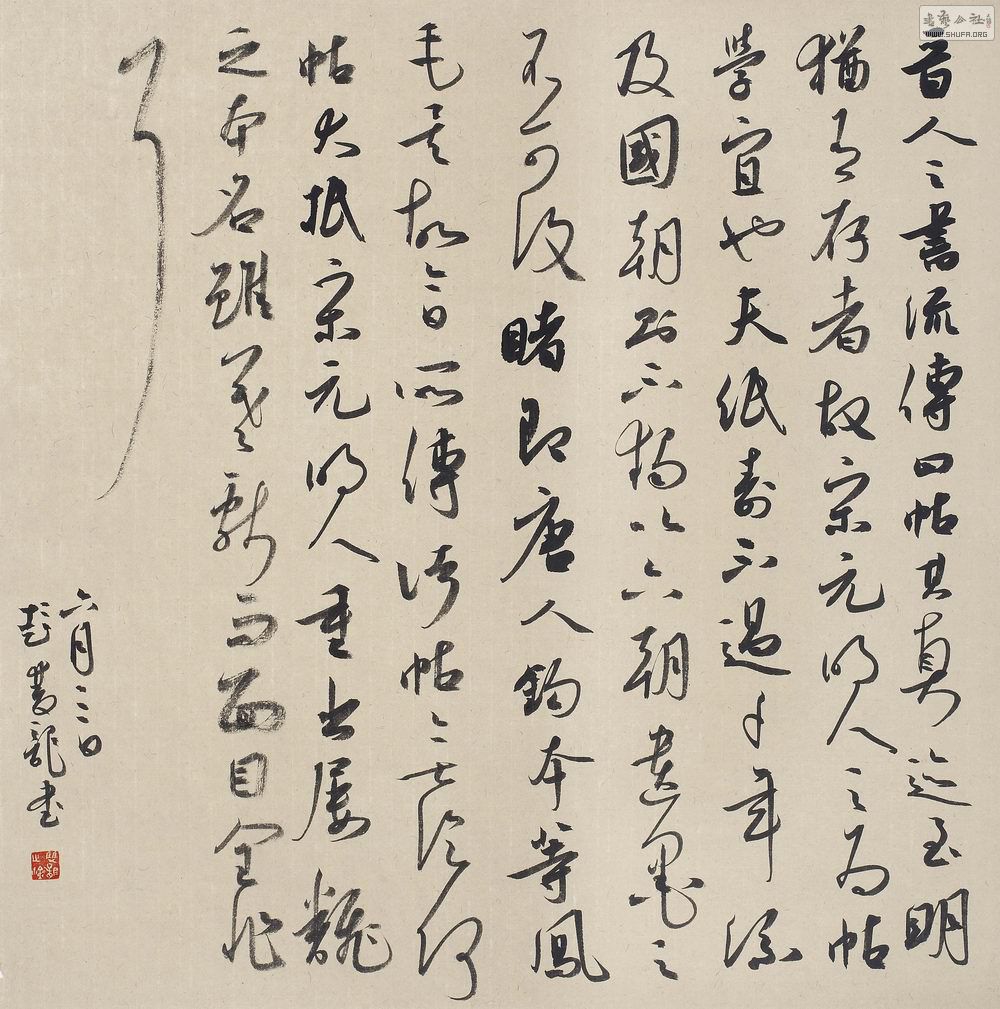 昔人之書流傳曰帖其真迹至明
猶有存者故宋元明人之為帖
學宜也夫紙壽不過千年流
及國朝則不獨六朝遺墨之
不可復睹即唐人鈎本等鳳
毛矣故今日所傳諸帖無論何
帖大抵宋元明人重出屢翻
之本名雖羲獻而面目全非
六月二日
彭雙龍書
書藝公社
www.SHUFA.ORG